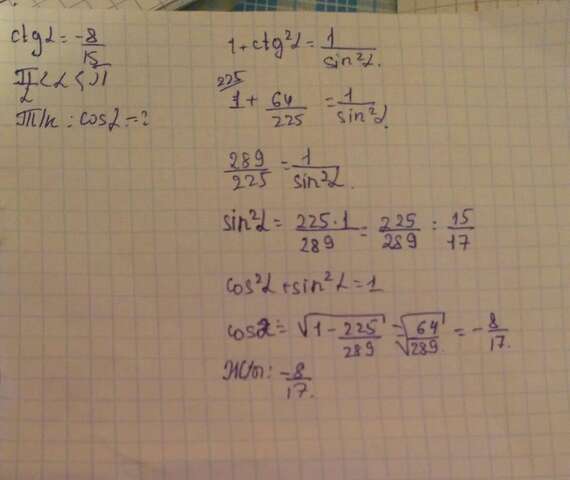 ctgα = -8/15
П/2 < α < П
Т/к : cosα = ?
1 + ctg²α = 1/sin²α.
225
1 + 64/225 = 1/sin²α.
289/225 = 1/sin²α.
sin²α = 225·1/289 = 225/289 : 15/17
cos²α + sin²α = 1
cosα = √(1 - 225/289) = √(64/289) = -8/17.
Ж/п: -8/17.